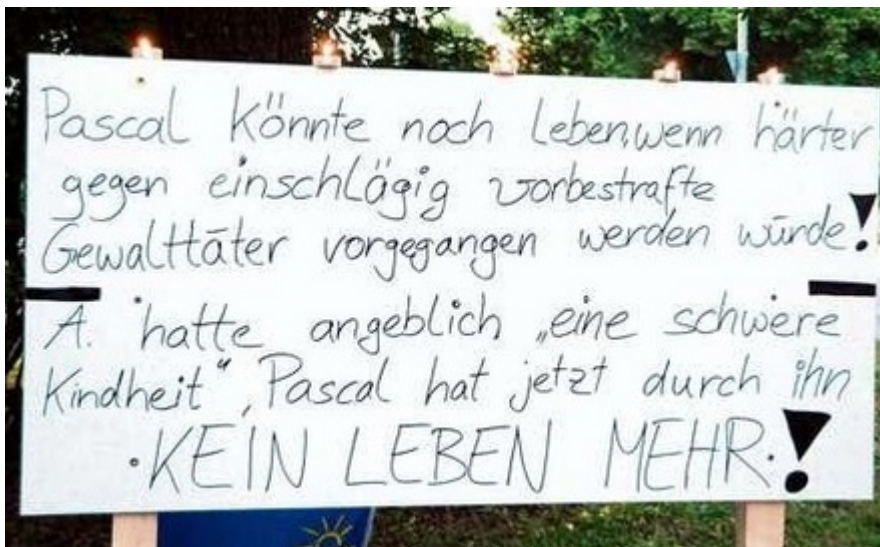 Pascal könnte noch leben, wenn härter
gegen einschlägig vorbestrafte
Gewalttäter vorgegangen werden würde!
A. hatte angeblich „eine schwere
Kindheit“, Pascal hat jetzt durch ihn
KEIN LEBEN MEHR!